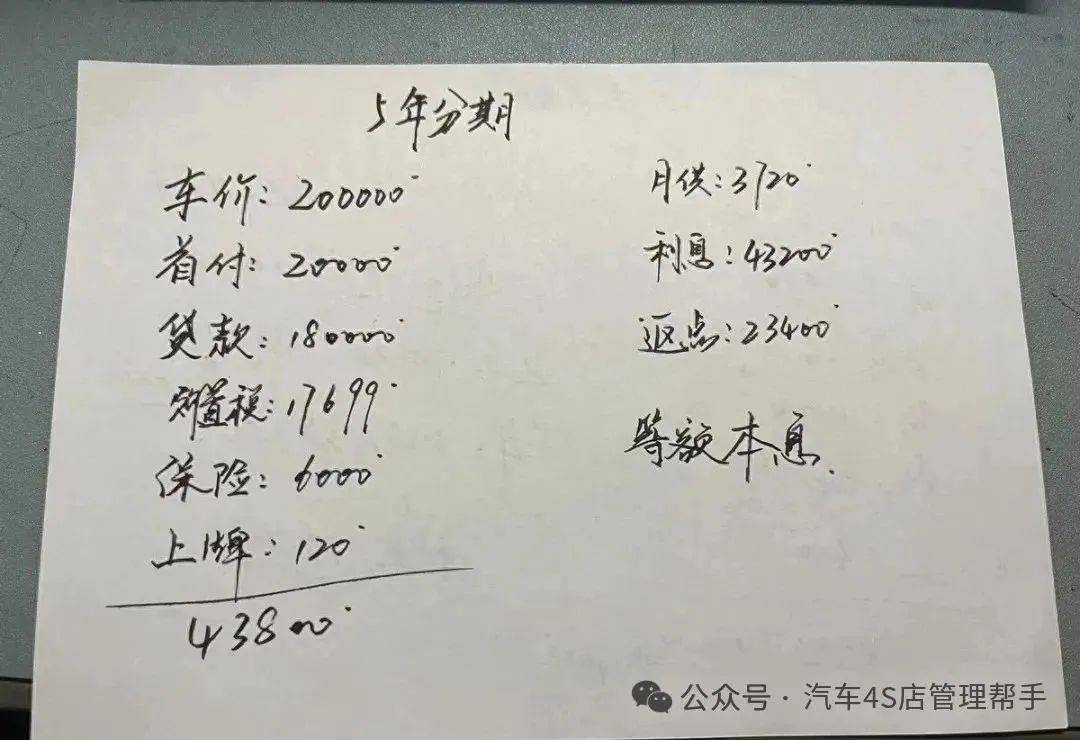 5年分期
车价：200000
首付：20000
贷款：180000
购置税：17699
保险：6000
上牌：120
43800
月供：3720
利息：43200
返点：23400
等额本息
公众号·汽车4S店管理帮手